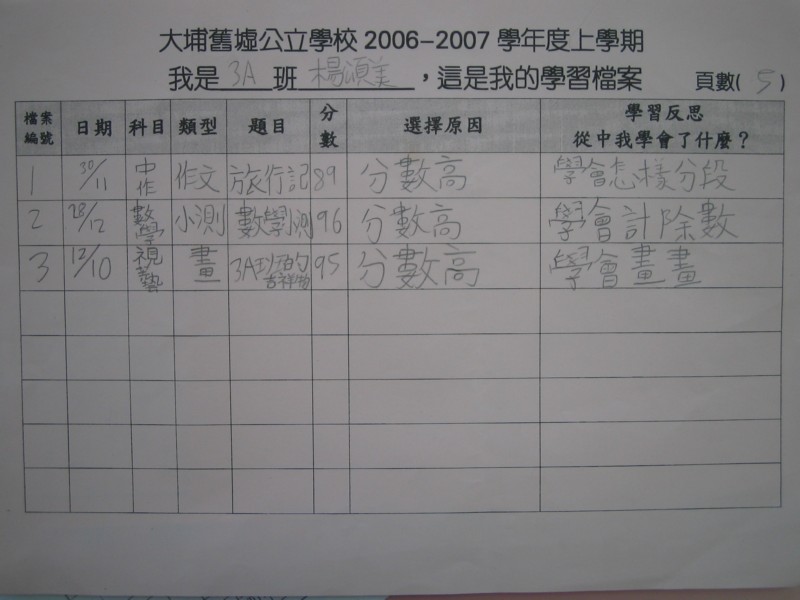 大埔舊墟公立學校 2006-2007 學年度上學期
我是 3A 班 楊頌美 ,這是我的學習檔案 頁數( 5 )
檔案編號 日期 科目 類型 題目 分數 選擇原因 學習反思 從中我學會了什麼?
1 30/11 中作 作文 旅行記 89 分數高 學會怎樣分段
2 28/12 數學 小測 數學測 96 分數高 學會計除數
3 12/10 視藝 畫 3A班的吉祥物 95 分數高 學會畫畫